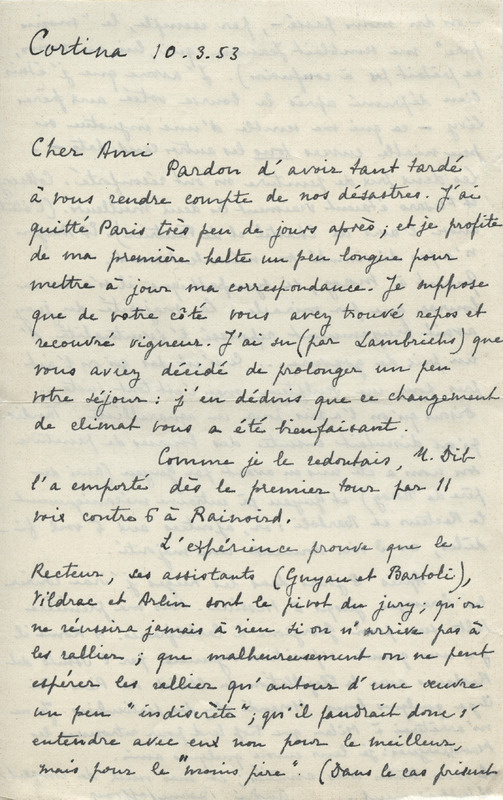 Cortina 10.3.53
Cher Ami
Pardon d'avoir tant tardé
à vous rendre compte de nos désastres. J'ai
quitté Paris très peu de jours après ; et je profite
de ma première halte un peu longue pour
mettre à jour ma correspondance. Je suppose
que de votre côté vous avez trouvé repos et
recouvré vigueur. J'ai su (par Lambrichs) que
vous aviez décidé de prolonger un peu
votre séjour : j'en déduis que ce changement
de climat vous a été bienfaisant.
Comme je le redoutais, M. Dib
l'a emporté dès le premier tour par 11
voix contre 6 à Rainoird.
L'expérience prouve que le
Recteur, ses assistants (Guyau et Bartoli),
Vildrac et Arlin sont le pivot du jury ; qu'on
ne réussira jamais à rien si on n'arrive pas à
les rallier ; que malheureusement on ne peut
espérer les rallier qu'autour d'une œuvre
un peu "indiscrète" ; qu'il faudrait donc s'
entendre avec eux non pour le meilleur,
mais pour le "moins pire". (Dans le cas présent